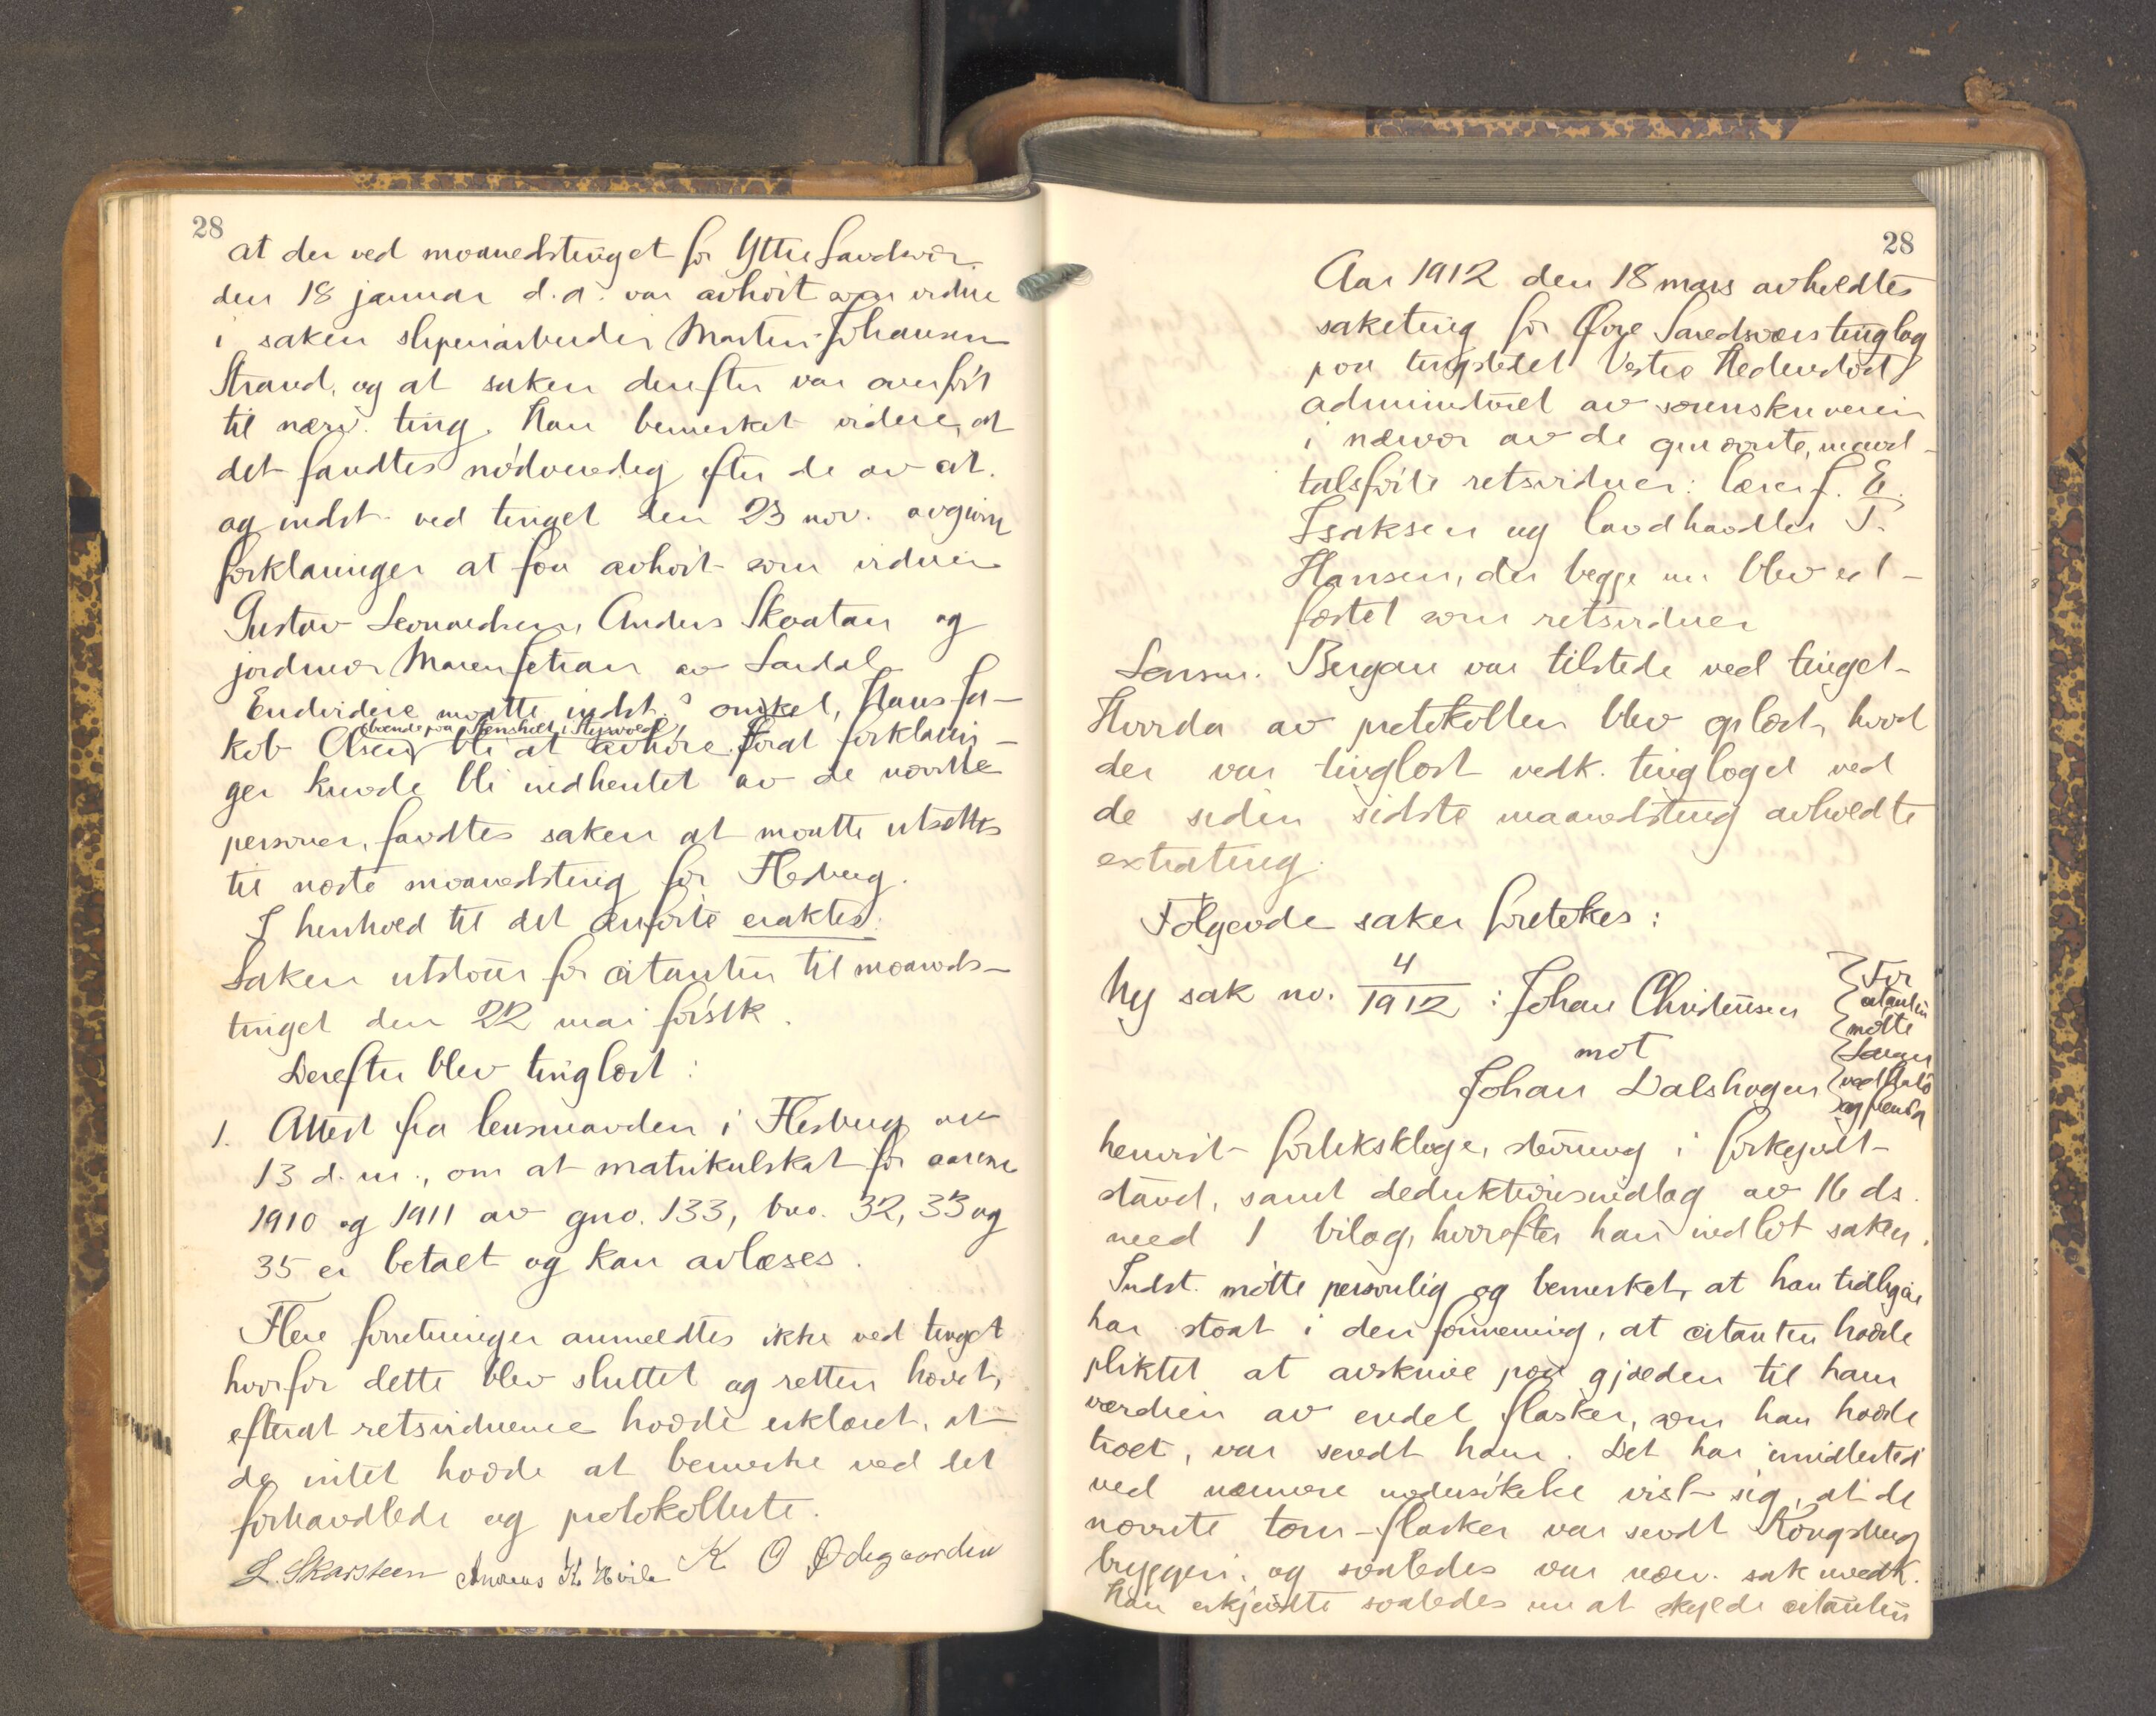 28
at der ved maanedstinget for Ytre Sandsvær
den 18 januar d.a. var avhørt som vidne
i saken sliperiarbeider Martin Johansen
Strand, og at saken derefter var overført
til nærv. ting. Han bemerket videre, at
det fandtes nødvendig efter de av cit.
og indst. ved tinget den 23 nov. avgivne
forklaringer at faa avhørt som vidner
Gustav Leonardsen, Anders Skaatan og
jordmor Maren Setran av Sandsv.
Endvidere maatte indst.s onkel, Hans Ja-
boende paa Stensholt i Styrvold
kob Olsen bli at avhøre. Forat forklarin-
ger kunde bli indhentet av de nævnte
personer, fandtes saken at maatte utsættes
til næste maanedsting for Flesberg.
I henhold til det anførte eraktes:
Saken utstaar for citanten til maaneds-
tinget den 22 mai førstk.
Derefter blev tinglæst:
1. Attest fra lensmanden i Flesberg av
13 d.m., om at matrikulskat for aarene
1910 og 1911 av gno. 133, bno. 32, 33 og
35 er betalt og kan avlæses.
Flere forretninger anmeldtes ikke ved tinget
hvorfor dette blev sluttet og retten hævet,
efterat retsvidnerne hadde erklæret, at
de intet hadde at bemerke ved det
forhandlede og protokollerte.
L. Skarsteen Andreas K Hvila K O Ødegaarden
28
Aar 1912 den 18 mars avholdtes
saketing for Øvre Sandsværs tinglag
paa tingstedet Vestre Hedenstad,
administreret av sorenskriveren
i nærvær av de opnævnte, mand-
talsførte retsvidner: lærer J. E.
Isaksen og landhandler T.
Hansen, der begge nu blev ed-
fæstet som retsvidner
Lensm. Bergan var tilstede ved tinget-
Hvorda av protokollen blev oplæst, hvad
der var tinglæst vedk. tinglaget ved
de siden sidste maanedsting avholdte
extrating.
Følgende saker foretokes:
Ny sak no. 4/1912 : Johan Christensen
mot
Johan Dalshagen
For
citanten
møtte
ved
og frem
henvist forliksklage, stevning i forkynt
stand, samt deduktionsindlæg av 16 ds.
med 1 bilag, hvorefter han indlot saken.
Indst. møtte personlig og bemerket, at han tidligere
har staat i den formening, at citanten hadde
pliktet at avskrive paa gjælden til ham
værdien av endel flasker, som han hadde
troet, var sendt ham. Det har imidlertid
ved nærmere undersøkelse vist sig, at de
nævnte tom-flasker var sendt Kongsberg
bryggeri, og saaledes var nærv. sak uvedk.
Han erkjendte saaledes nu at skylde citanten